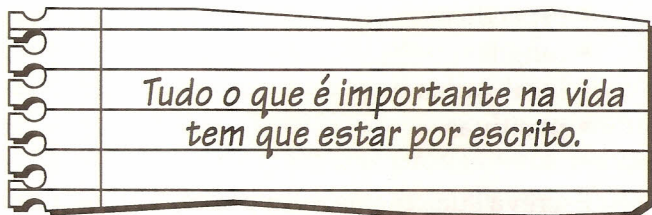 Tudo o que é importante na vida
tem que estar por escrito.